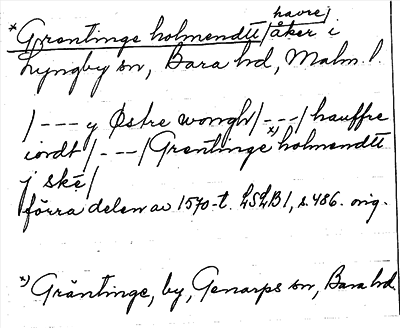 havre/
*Grøntinge holmendtt/åker i
Lyngby sn, Bara hd, Malm. l.
/--- y Østre wongh/---/hauffre
iordt/---/Grøntinge x) holmendtt
j ské/
förra delen av 1570-t. LSLB1, s. 486. orig.
x) Gräntinge, by, Genarps sn, Bara hd.